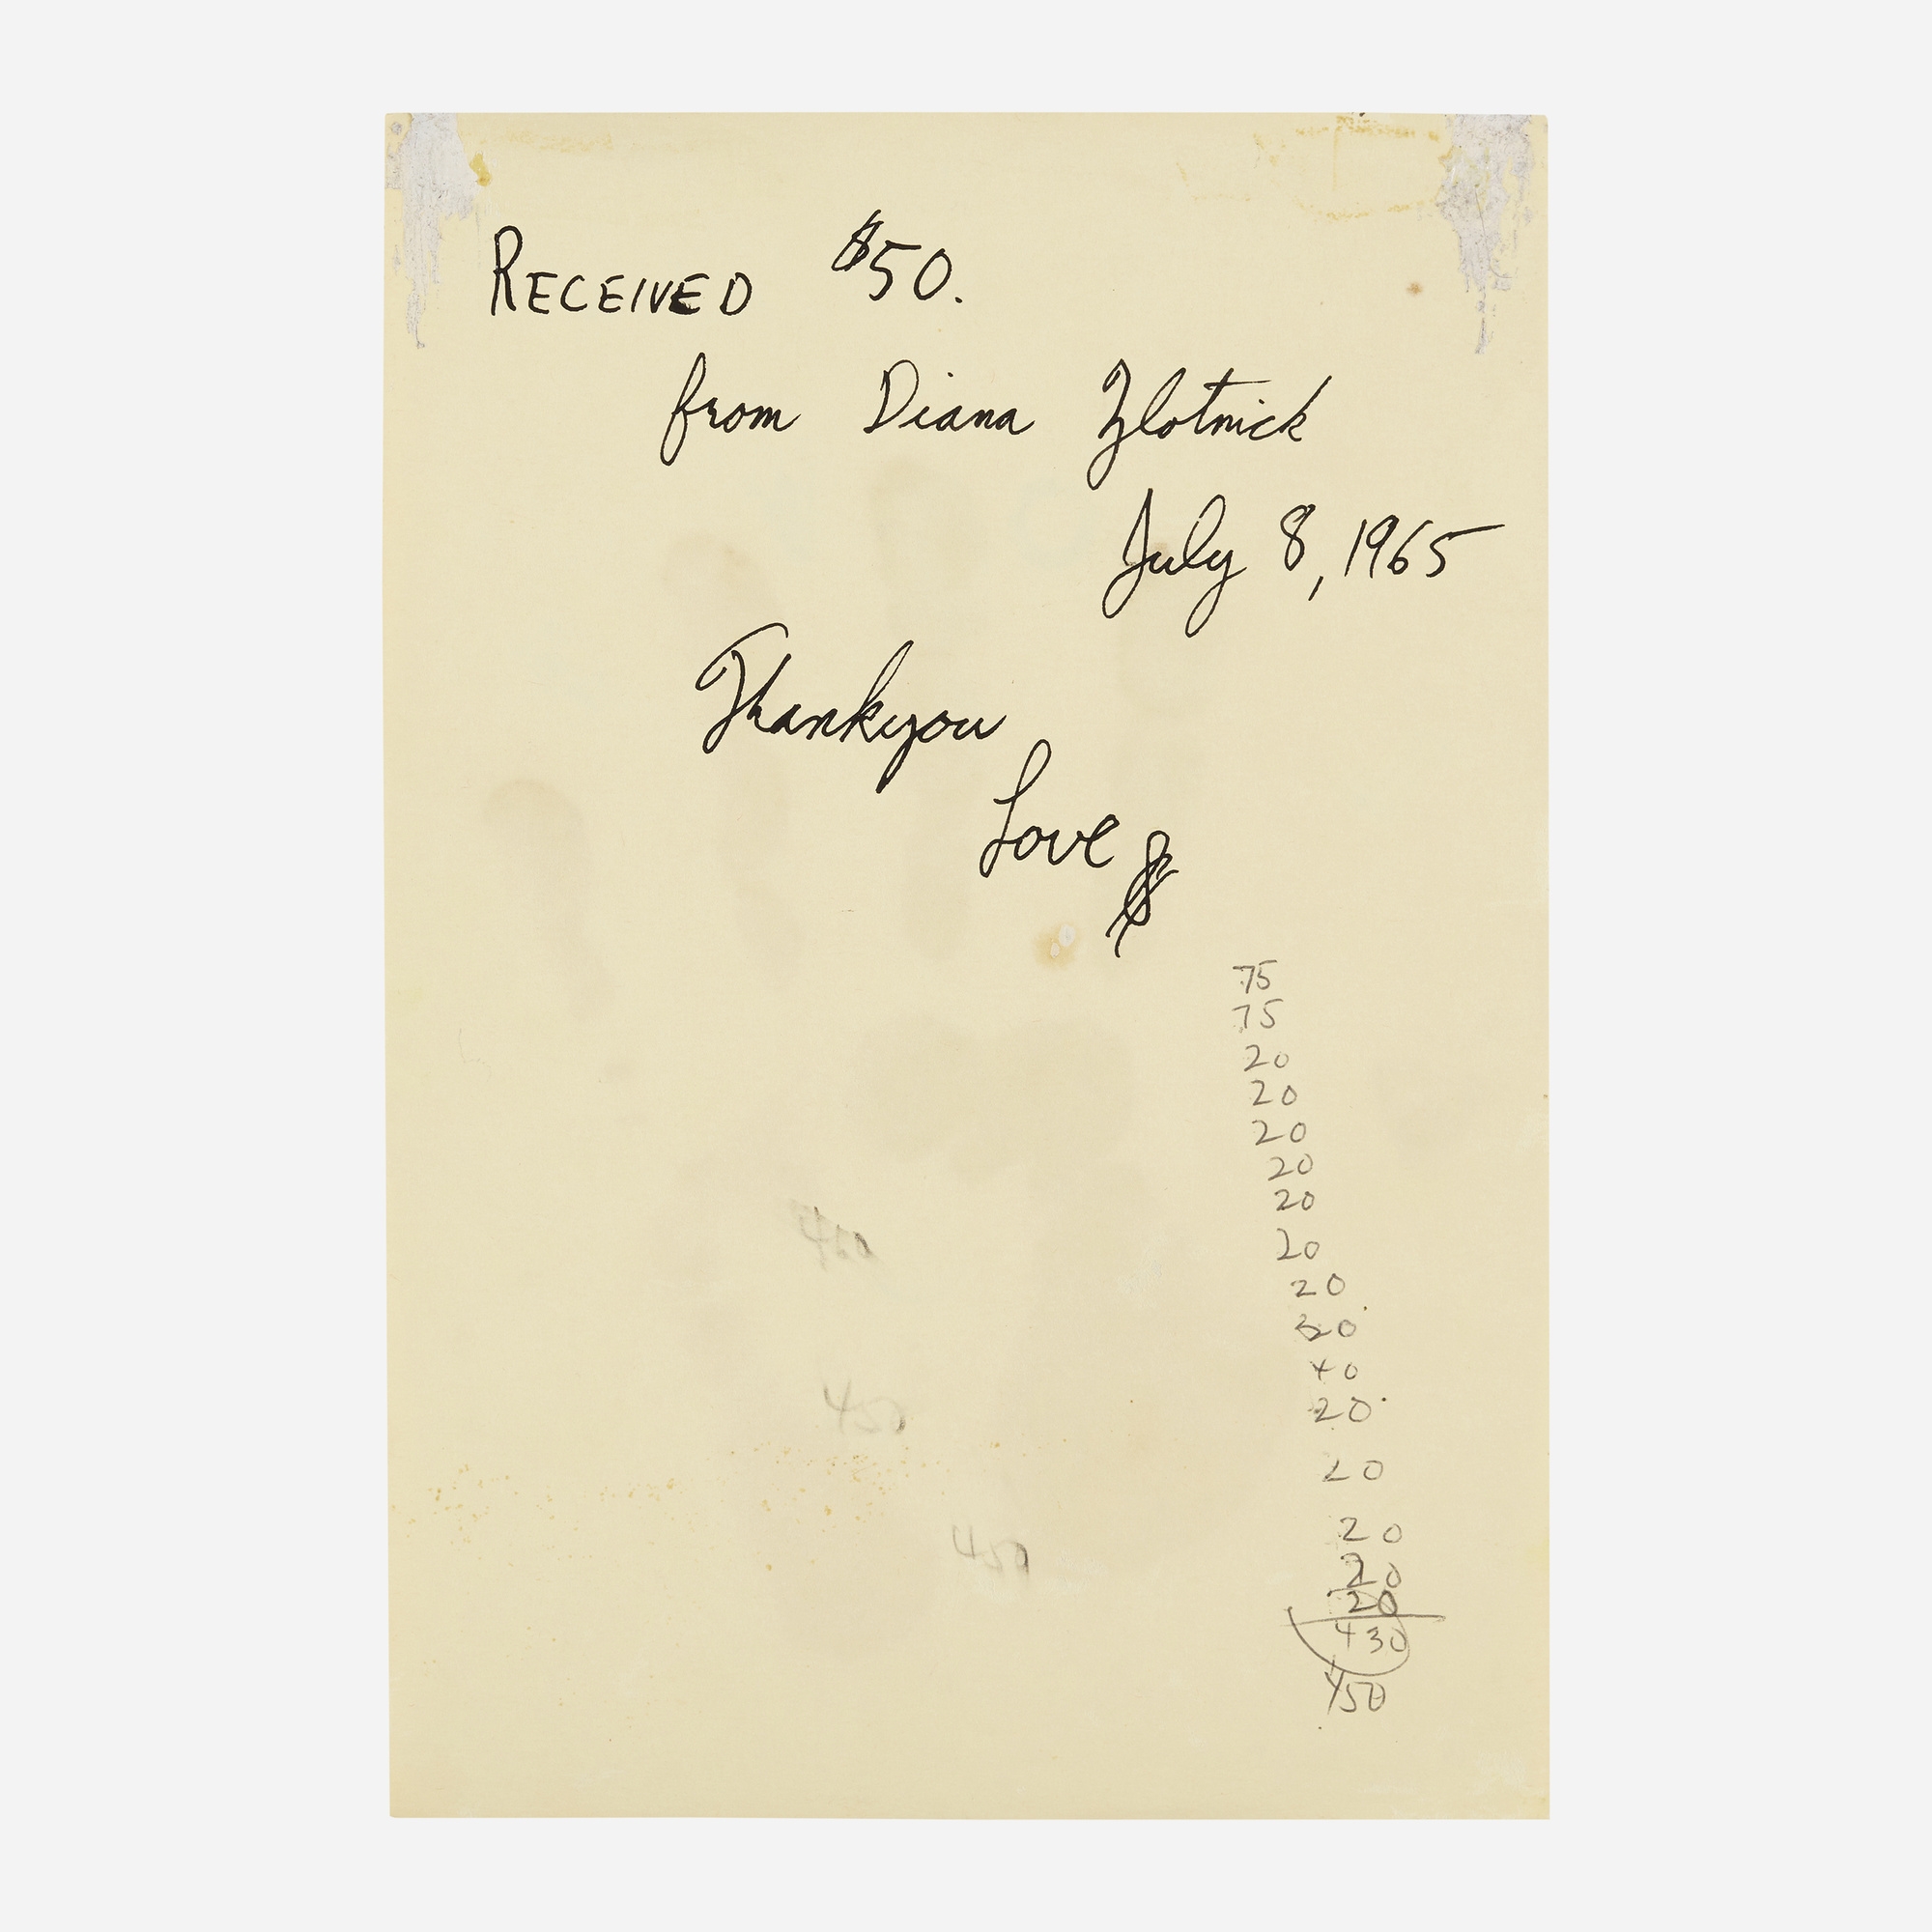 RECEIVED $50.
from Diana Zlotnick
July 8, 1965
Thankyou
Love
75
75
20
20
20
20
20
20
20
20
40
20
20
20
20
20
430
450
450
450